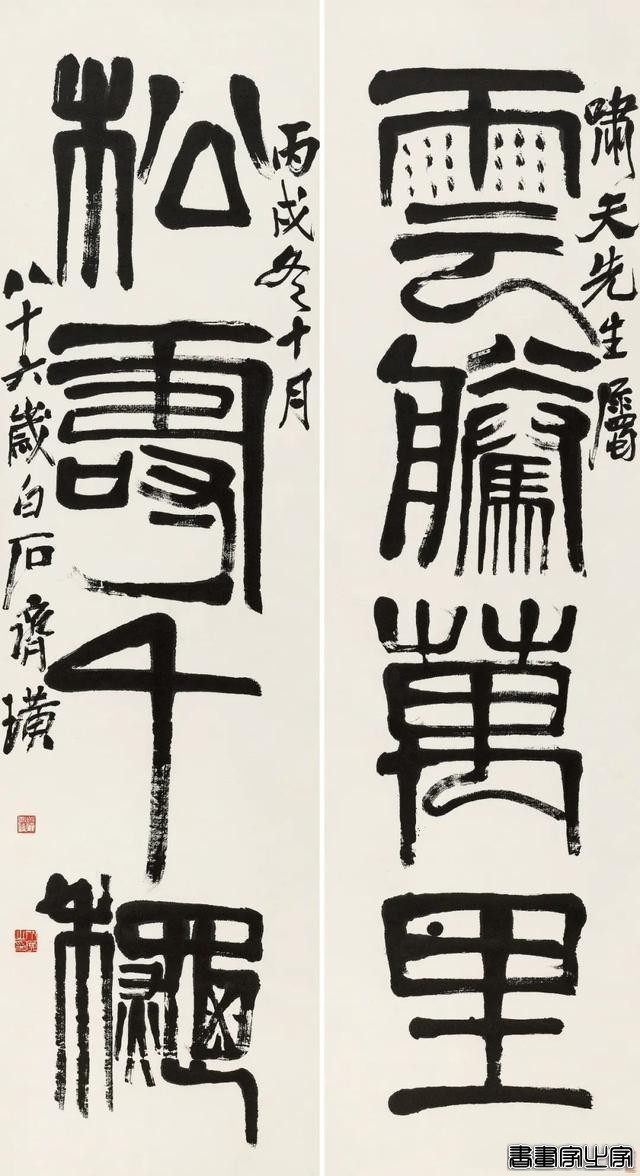 嘯天先生屬
雲騰萬里
丙戌冬十月
松壽千龝
八十六歲白石齊璜
書畫家之家